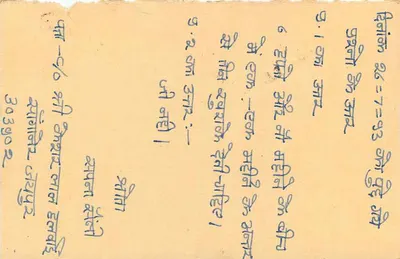 दिनांक २६=7=९३ को पूछे गये
प्रश्नों के उत्तर
प्र. 1 का उत्तर
6 हफ्ते और नौ महीने के बीच
में एक-एक महीने के अन्तर
से तीन खुराकें देनी चाहिए।
प्र. २ का उत्तर :-
जी नहीं।
श्रोता
सपना सैनी
पता - C/o श्री केदार लाल हलवाई
सांगानेर जयपुर
303902